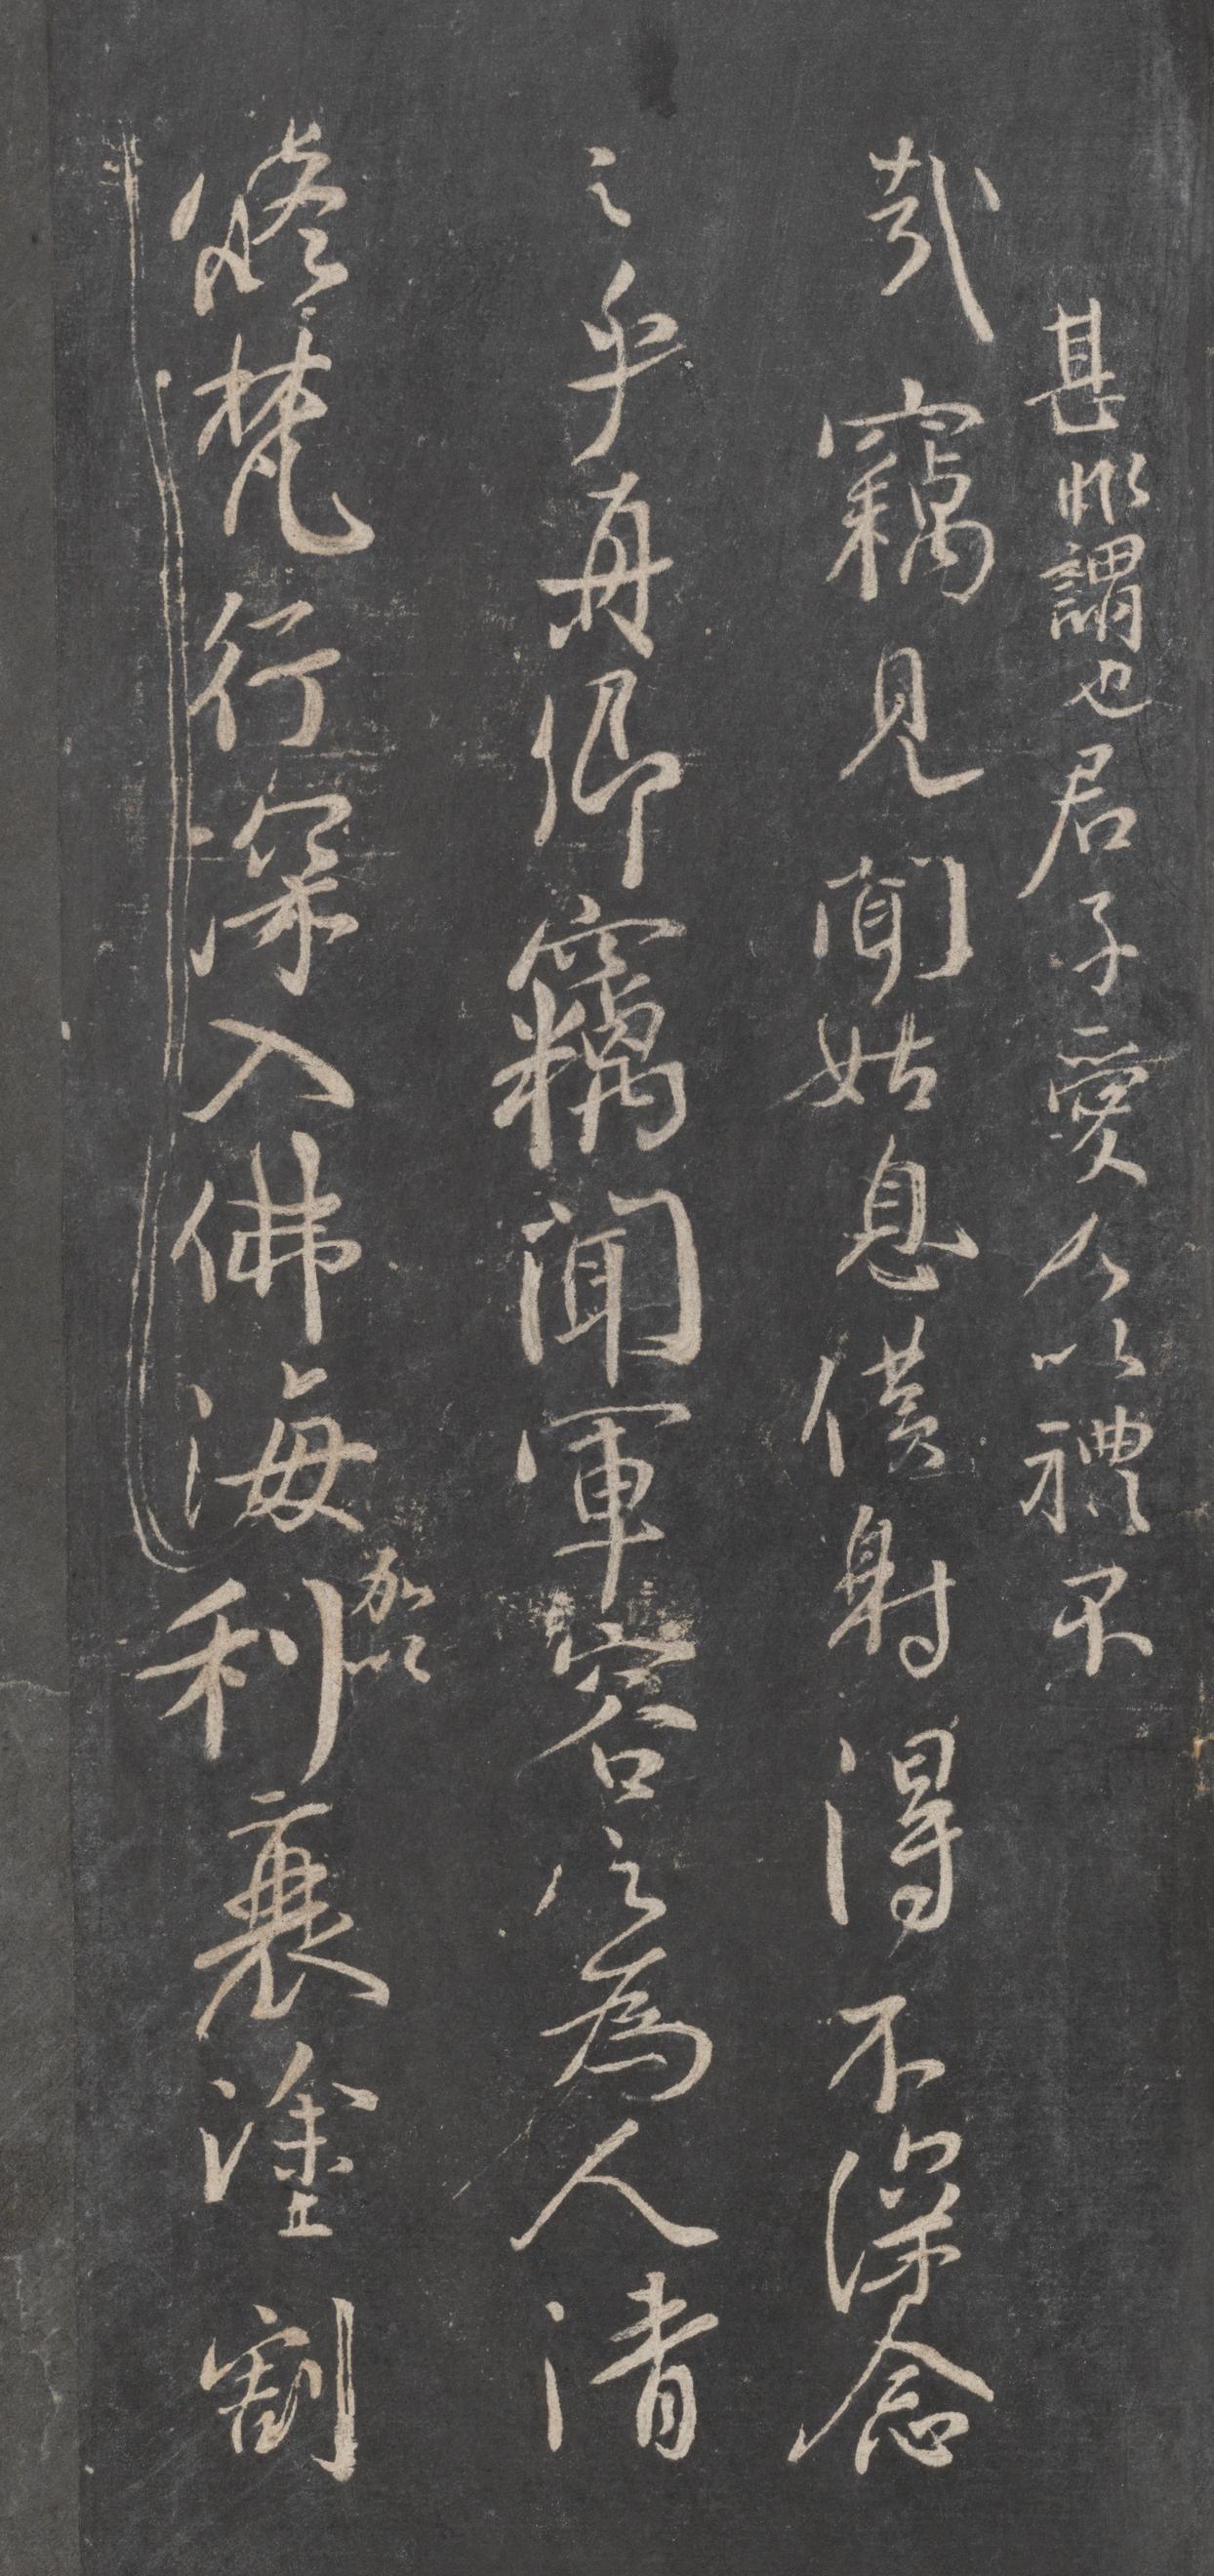 甚非謂也君子愛人以禮不
哉 竊見聞姑息僕射得不深念
之乎真卿竊聞軍容之為人清
加以
修梵行深入佛海利衰塗割